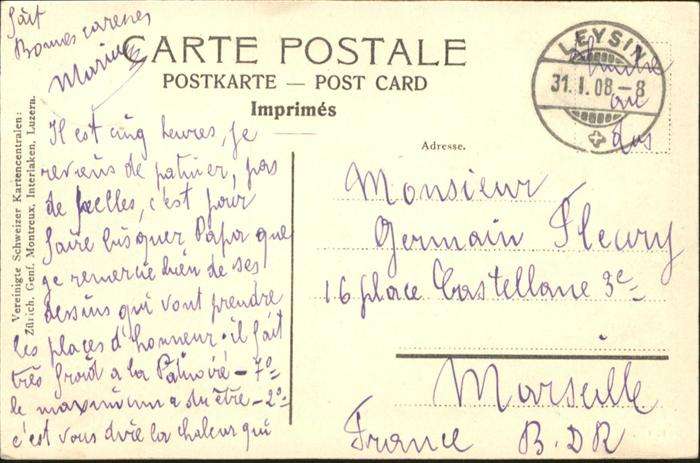 CARTE POSTALE
POSTKARTE — POST CARD
Imprimés
Adresse.
Vereinigte Schweizer Kartencentralen:
Zürich, Genf, Montreux, Interlaken, Luzern.
LEYSIN
31.I.08.–8
timbre
au
dos
Il est cinq heures, je
reviens de patiner, pas
de pelles, c'est pour
faire bisquer Papa que
je remercie bien de ses
dessins qui vont prendre
les places d'honneur. il fait
très froid a la Patinoire – 7°
le maximum a du être – 2°
c'est vous dire la chaleur qui
fait
Bonnes caresses
Monsieur
Germain Fleury
16 place Castellane 3e
Marseille
France B.D.R